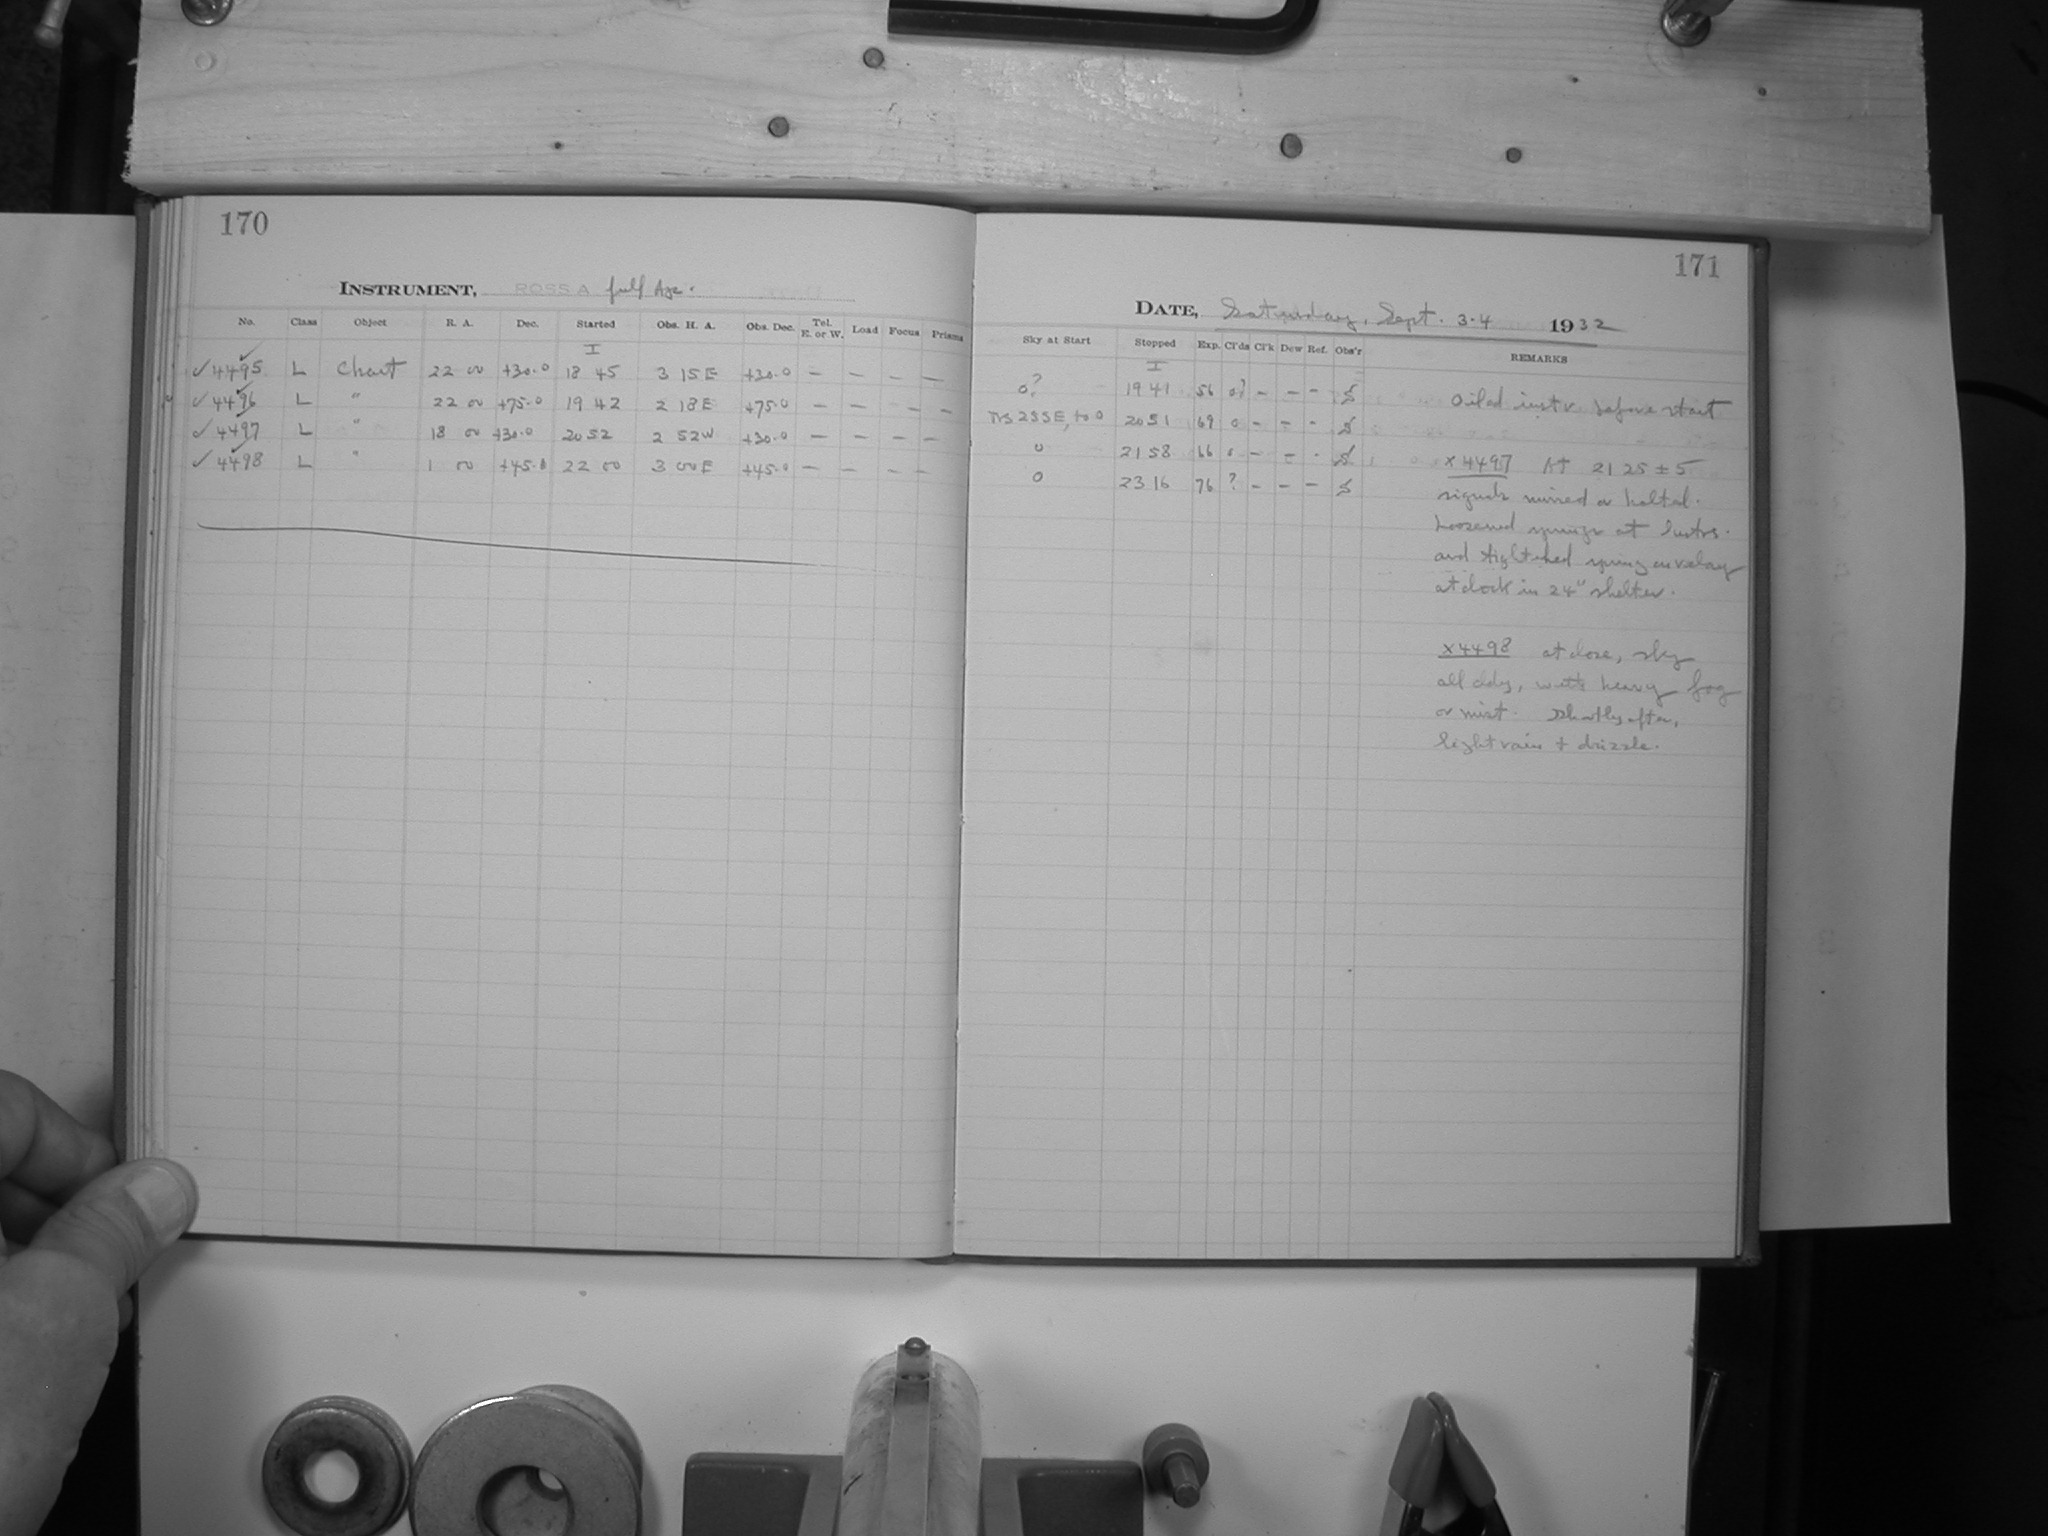 170
INSTRUMENT, ROSS A full Ape.
No. Class Object R. A. Dec. Started Obs. H. A. Obs. Dec. Tel. E. or W. Load Focus Prisms
I
✓4495 L Chart 22 00 +30.0 18 45 3 15 E +30.0 — — — —
✓4496 L " 22 00 +75.0 19 42 2 18 E +75.0 — — — —
✓4497 L " 18 00 +30.0 20 52 2 52 W +30.0 — — — —
✓4498 L " 1 00 +45.0 22 00 3 00 E +45.0 — — — —
171
DATE, Saturday, Sept. 3-4 1932
Sky at Start Stopped Exp. Cl'ds Cl'k Dew Ref. Obs'r REMARKS
I
0? 19 41 56 0? - - - S
2SSE, to 0 20 51 69 0 - - - S
0 21 58 66 0 - - - S
0 23 16 76 ? - - - S
Oiled instr. before start
x4497 At 21 25 ± 5
signals missed or halted.
Loosened springs at instrs.
and tightened spring on relay
at clock in 24" shelter.
x4498 at close, sky
all cldy, with heavy fog
or mist. Shortly after,
light rain + drizzle.